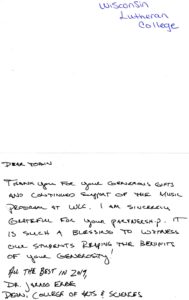 Wisconsin
Lutheran
College
DEAR
THANK YOU FOR YOUR GENEROUS GIFTS
AND CONTINUED SUPPORT OF THE MUSIC
PROGRAM AT WLC. I AM SINCERELY
GRATEFUL FOR YOUR PARTNERSHIP. IT
IS SUCH A BLESSING TO WITNESS
OUR STUDENTS REAPING THE BENEFITS
OF YOUR GENEROSITY!
ALL THE BEST IN 2019,
DR.
DEAN, COLLEGE OF ARTS & SCIENCES